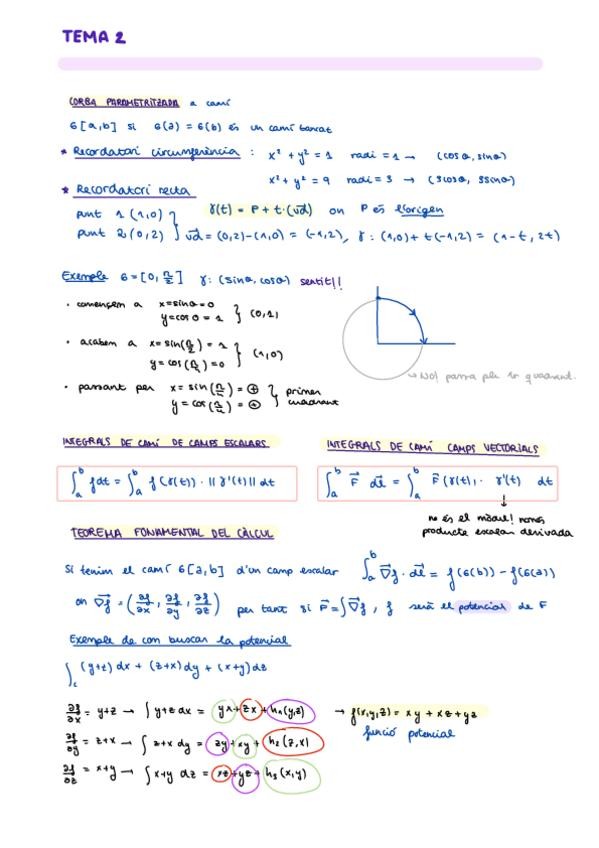 TEMA 2
CORBA PARAMETRITZADA a camí
σ[a,b] si σ(a) = σ(b) és un camí tancat
* Recordatori circumferència : x² + y² = 1 radi = 1 → (cosα, sinα)
x² + y² = 9 radi = 3 → (3cosα, 3sinα)
* Recordatori recta
punt 1 (1,0)
punt 2 (0,2)
γ(t) = P + t·(v⃗d) on P és l'origen
v⃗d = (0,2)-(1,0) = (-1,2), γ : (1,0) + t(-1,2) = (1-t, 2t)
Exemple σ = [0, π/2] γ: (sinα, cosα) sentit!!
· comencem a x = sin 0 = 0
y = cos 0 = 1 } (0,1)
· acabem a x = sin(π/2) = 1
y = cos(π/2) = 0 } (1,0)
· passant per x = sin(π/4) = ⊕
y = cos(π/4) = ⊕ } primer quadrant
→ NO! passa pel 1r quadrant.
INTEGRALS DE CAMÍ DE CAMPS ESCALARS
∫ₐᵇ f dt = ∫ₐᵇ f(γ(t)) · ||γ'(t)|| dt
INTEGRALS DE CAMÍ CAMPS VECTORIALS
∫ₐᵇ F⃗ dl⃗ = ∫ₐᵇ F⃗(γ(t)) · γ'(t) dt
no és el mòdul! només
producte escalar derivada
TEOREMA FONAMENTAL DEL CÀLCUL
Si tenim el camí σ[a,b] d'un camp escalar ∫ₐᵇ ∇⃗f · dl⃗ = f(σ(b)) - f(σ(a))
on ∇⃗f = (∂f/∂x, ∂f/∂y, ∂f/∂z) per tant si F⃗ = ∫∇⃗f , f serà el potencial de F
Exemple de com buscar la potencial
∫c (y+z) dx + (z+x) dy + (x+y) dz
∂f/∂x = y+z → ∫ y+z dx = yx + zx + h₁(y,z)
→ f(x,y,z) = xy + xz + yz
funció potencial
∂f/∂y = z+x → ∫ z+x dy = zy + xy + h₂(z,x)
∂f/∂z = x+y → ∫ x+y dz = xz + yz + h₃(x,y)